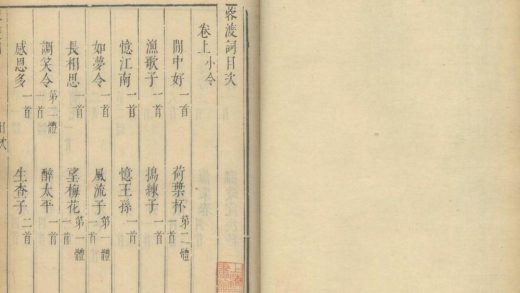 蓉渡詞目次
卷上 小令
閒中好 一首 荷葉杯 第二體 一首
漁歌子 一首 搗練子 一首
憶江南 一首 憶王孫 一首
如夢令 一首 風流子 第一體 一首
長相思 一首 望梅花 第一體 一首
調笑令 第二體 一首 醉太平 一首
感恩多 一首 生查子 二首
目次